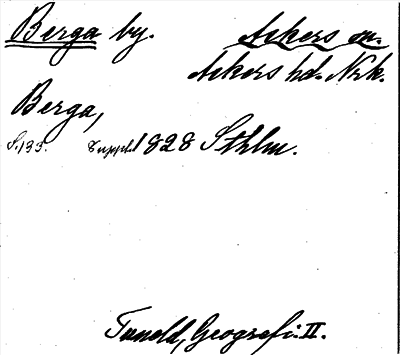 Berga by. Askers sn.
Askers hd. Nrk.
Berga,
S. 133. Suppl. 1828 Sthlm.
Tuneld, Geografi. II.